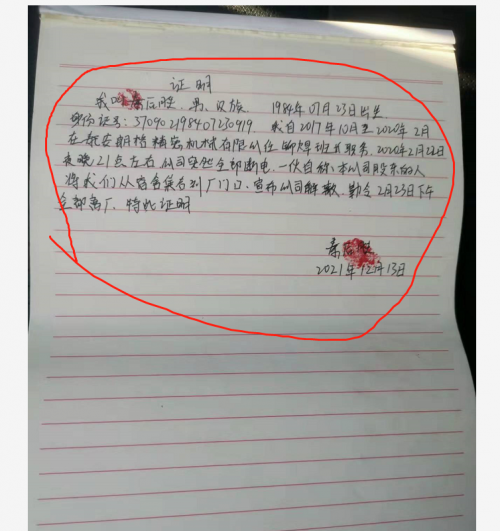 证明
我叫 男、汉族 1984年07月23日出生
身份证号：370902198407230919 我自2017年10月至2020年2月
在泰安 精密机械有限公司任铆焊班长职务。2020年2月22日
夜晚21点左右公司突然全部断电，一伙自称：本公司股东的人
将我们从宿舍集合到厂门口，宣布公司解散，勒令2月23日下午
全部离厂。特此证明
2021年12月13日